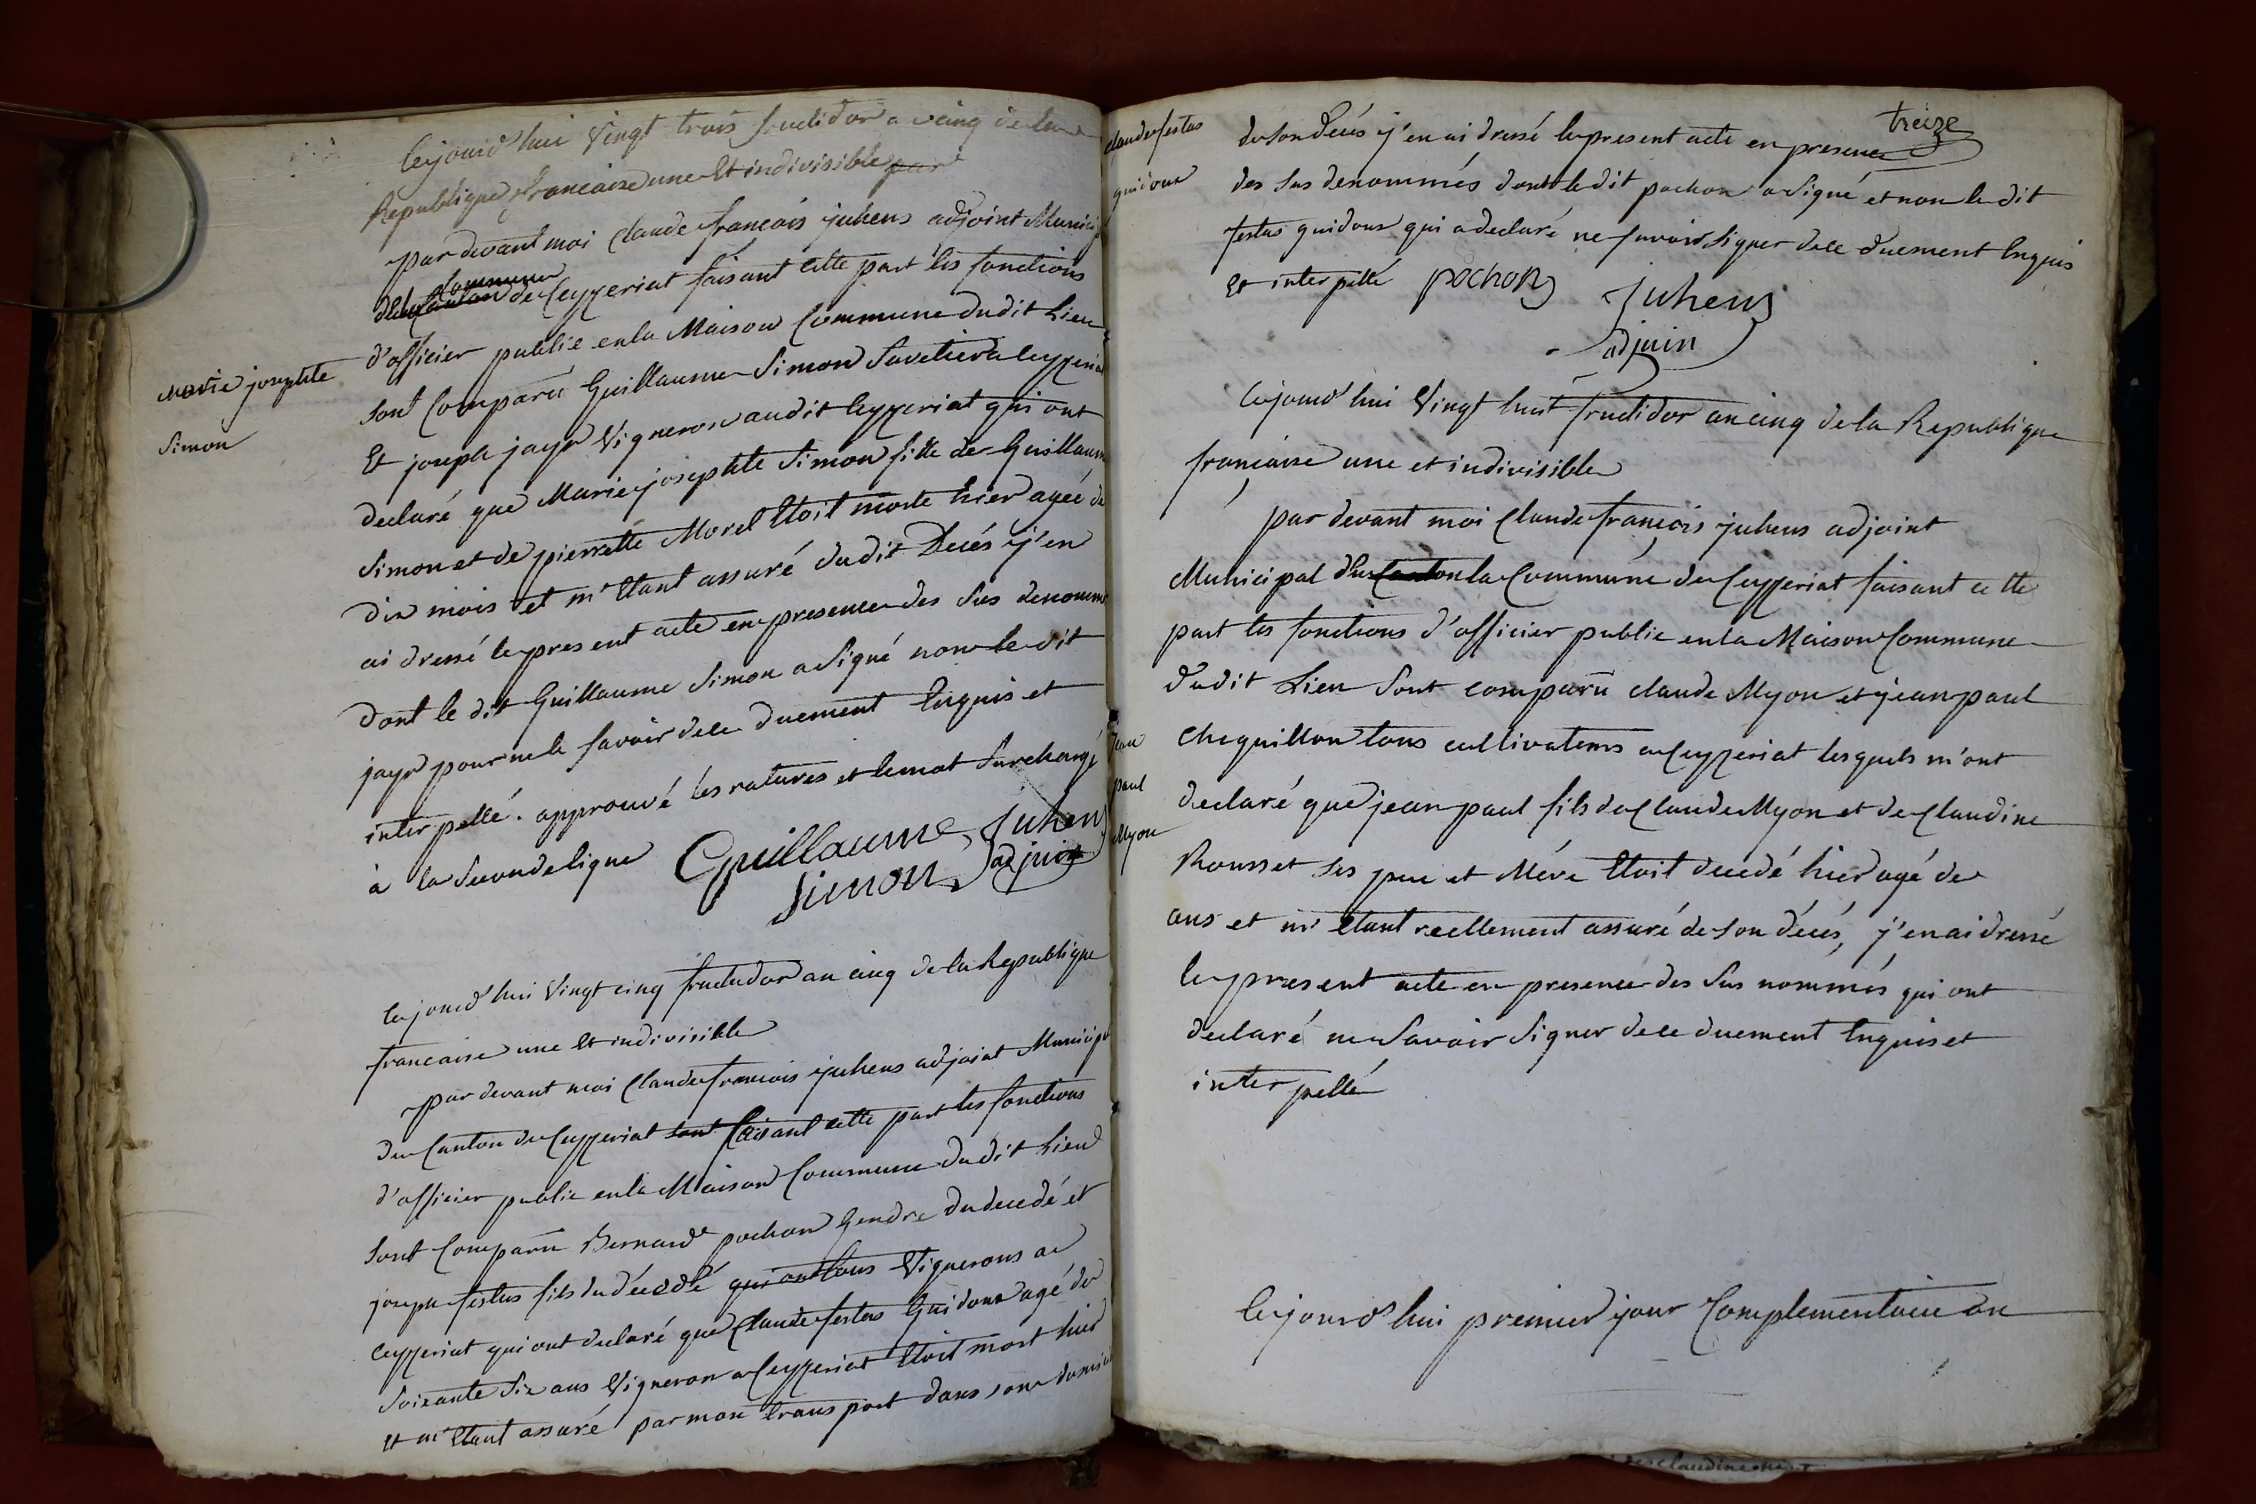 Cejourd'hui vingt trois fructidor an cinq de la
Republique francaise une et indivisible par
par devant moi claude francois juhens adjoint Municip
commune
de la Canton de Ceyzeriat faisant cette part les fonctions
d'officier public en la Maison Commune dudit Lieu
sont Comparu Guillaume Simon Savetier a Ceyzeriat
Et joseph jayr Vigneron audit Ceyzeriat qui ont
Marie josephte
Simon
declaré que Marie josephte Simon fille de Guillaume
Simon et de pierrette Morel Etoit morte hier ageé de
dix mois et m'Etant assuré dudit Decés j'en
ai dressé le present acte en presence des sus denommé
dont le dit Guillaume Simon a Signé non le dit
jayr pour ne le savoir de ce duement Enquis et
interpellé. approuvé les ratures et le mot Surchargé
à la Seconde ligne Guillaume Simon Juhens adjoin
Cejourd'hui Vingt cinq fructidor an cinq de la Republique
francaise une Et indivisible
par devant moi Claude francois juhens adjoint Municipa
du Canton de Ceyzeriat sont faisant cette part les fonctions
d'officier public en la Maison Commune du dit Lieu
sont Comparu Bernard pochon Gendre du decedé et
joseph festas fils du décédé qui ont tous Vignerons a
Ceyzeriat qui ont declaré que Claude festas Guidoux agé de
Soixante six ans Vigneron a Ceyzeriat Etoit mort hier
Et m'Etant assuré par mon transport dans son domicil
treize
claude festas
guidoux
de son Décés j'en ai dressé le present acte en presence
des sus denommés dont le dit pochon a Signé et non le dit
festas guidoux qui a declaré ne savoir signer de ce duement Enquis
Et interpellé pochon Juhens
adjoin
Cejourd'hui Vingt huit fructidor an cinq de la Republique
française une et indivisible
par devant moi Claude françois juhens adjoint
Municipal du Canton la Commune de Ceyzeriat faisant cette
part les fonctions d'officier public en la Maison Commune
dudit Lieu Sont comparu claude Myon et jean paul
Jean
paul
Myon
Cheguillon tous cultivateurs a Ceyzeriat lesquels m'ont
declaré que jean paul fils de Claude Myon et de Claudine
Rousset ses pere et Mére Etoit decedé hier agé de
ans et m'Etant reellement assuré de son décés, j'en ai dressé
le present acte en presence des sus nommés qui ont
declaré ne Savoir Signer de ce duement Enquis et
interpellé
Cejourd'hui premier jour Complementaire an